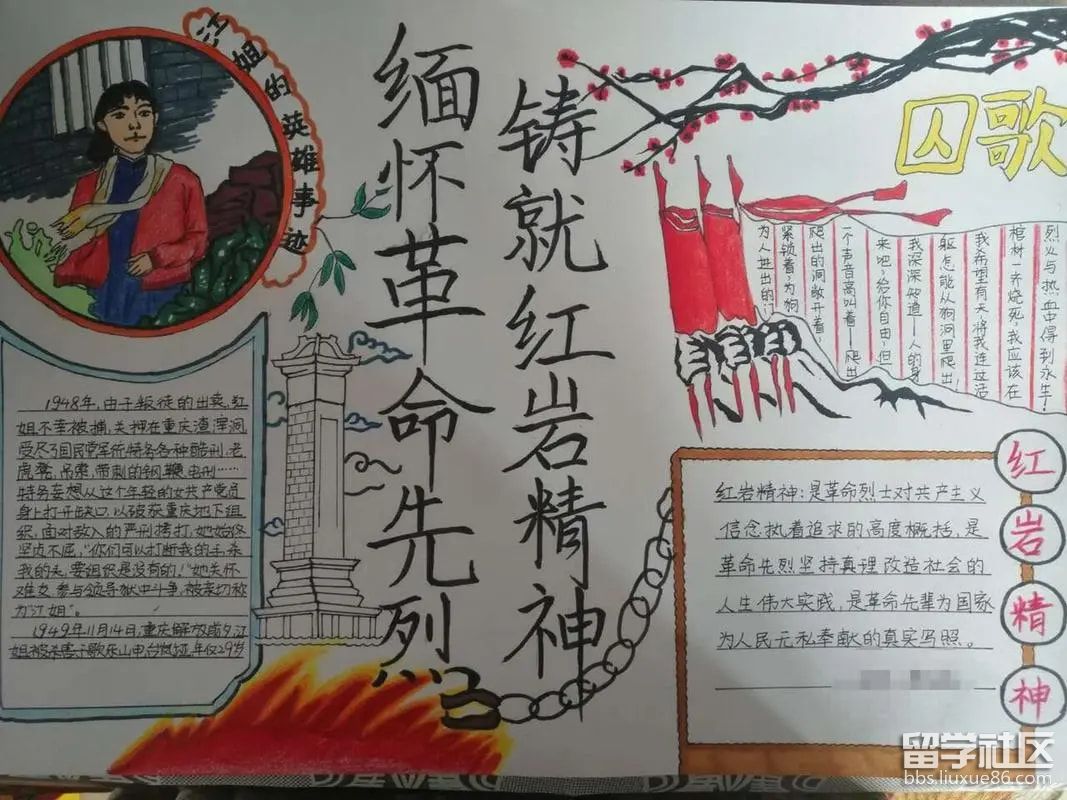 江姐的英雄事迹
缅怀革命先烈
铸就红岩精神
囚歌
为人进出的门
紧锁着，为狗
爬出的洞敞开着，
一个声音高叫着——爬出
来吧，给你自由，但
我深深知道——人的身
躯怎能从狗洞里爬出！
我希望有天，将我连这活
棺材一齐烧死，我应该在
烈火与热血中得到永生！
1948年，由于叛徒的出卖，江
姐不幸被捕，关押在重庆渣滓洞，
受尽了国民党军统特务各种酷刑，老
虎凳、吊索、带刺的钢鞭、电刑……
特务妄想从这个年轻的女共产党员
身上打开缺口，以破获重庆地下组
织，面对敌人的严刑拷打，她始终
坚贞不屈，“你们可以打断我的手，杀
我的头，要组织是没有的。”她关怀
难友，参与领导狱中斗争，被亲切称
为“江姐”。
1949年11月14日，重庆解放前夕，江
姐被杀害于歌乐山电台岚垭，年仅29岁
红岩精神：是革命烈士对共产主义
信念执着追求的高度概括，是
革命先烈坚持真理改造社会的
人生伟大实践，是革命先辈为国家
为人民无私奉献的真实写照。
红岩精神
留学社区
bbs.liuxue86.com